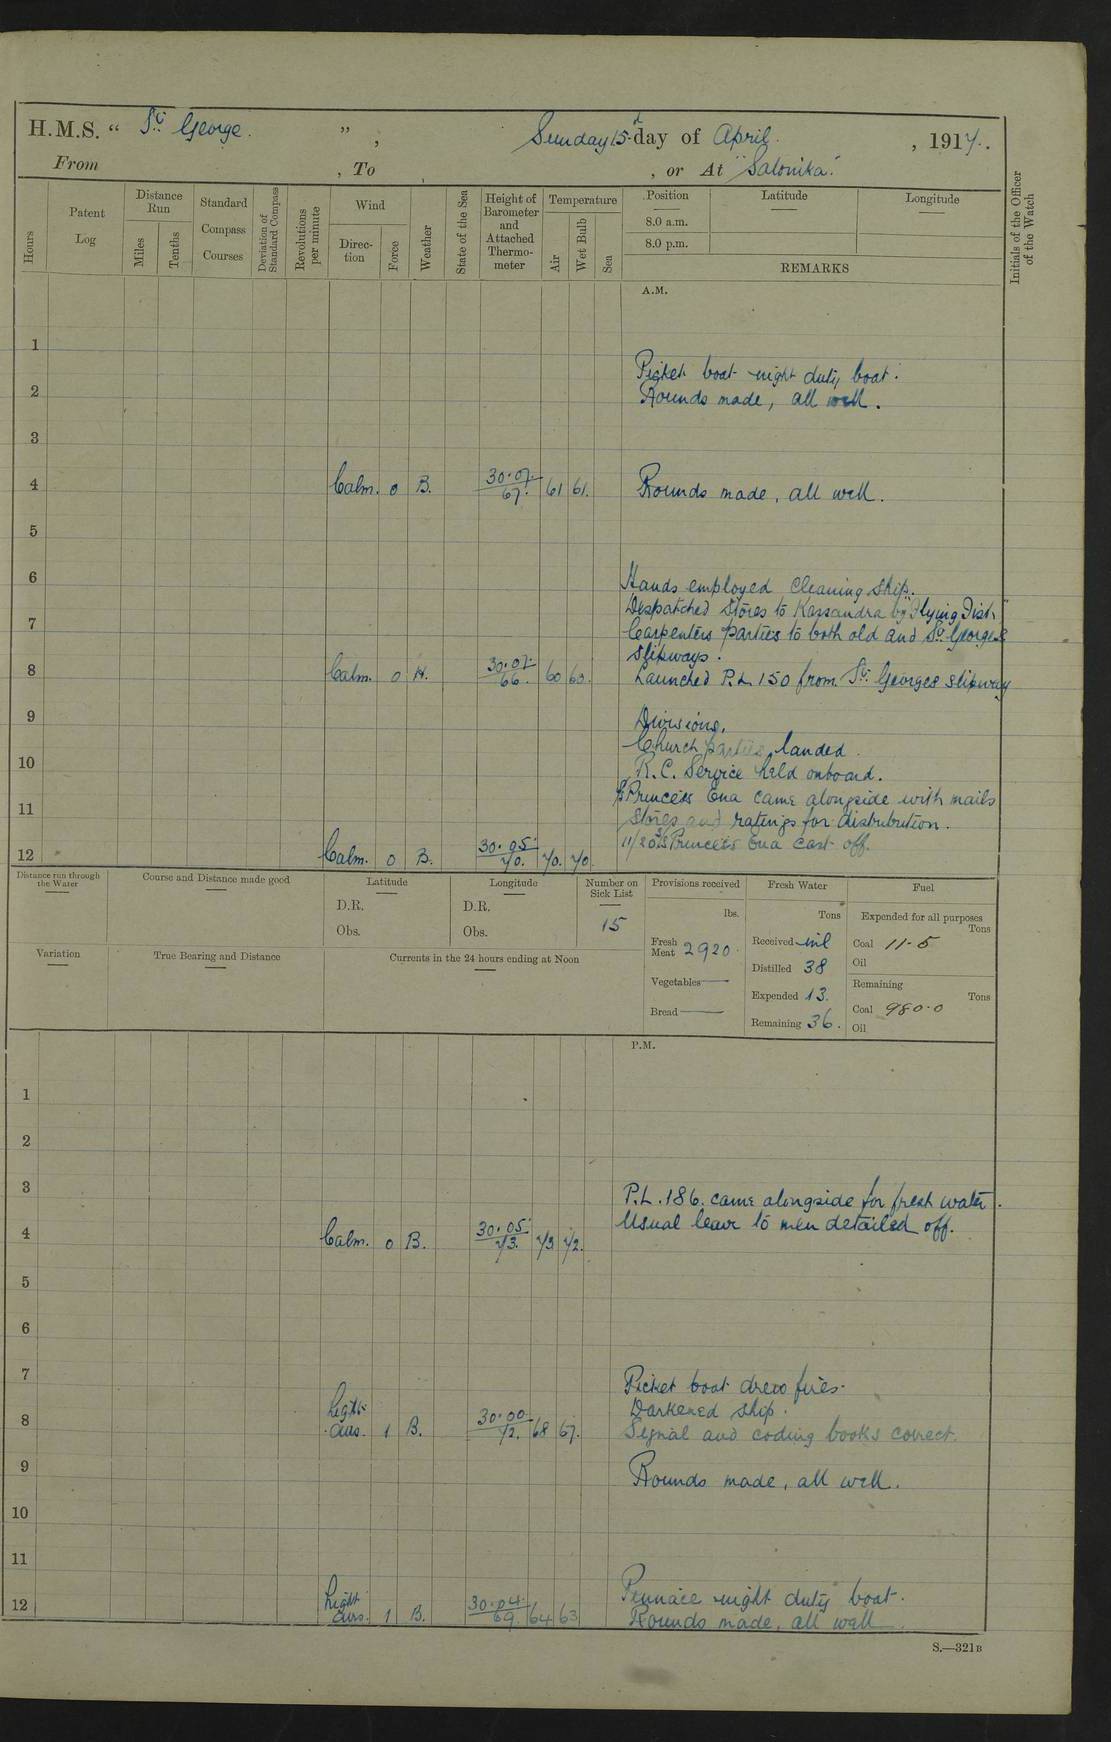 H.M.S. " St George. ", Sunday 15th day of April. , 1917.
From , To , or At "Salonika".
Hours
Patent Log
Distance Run
Miles
Tenths
Standard Compass Courses
Deviation of Standard Compass
Revolutions per minute
Wind
Direction
Force
Weather
State of the Sea
Height of Barometer and Attached Thermometer
Temperature
Air
Wet Bulb
Sea
Position
8.0 a.m.
8.0 p.m.
Latitude
Longitude
REMARKS
Initials of the Officer of the Watch
A.M.
1
Picket boat night duty boat.
2
Rounds made, all well.
3
4 Calm. 0 B. 30.07 67. 61 61. Rounds made, all well.
5
6
Hands employed cleaning ship.
Despatched stores to Kassandra by "Flying Fish"
7 Carpenters parties to both old and St. Georges
slipways.
8 Calm. 0 H. 30.07 66. 60 60. Launched P.L. 150 from St. Georges slipway
9 Divisions.
Church parties landed.
10 R.C. Service held onboard.
S/S Princess Ena came alongside with mails
11 stores and ratings for distribution.
11/20 S/S Princess Ena cast off.
12 Calm. 0 B. 30.05. 70. 70. 70.
Distance run through the Water
Course and Distance made good
Latitude
D.R.
Obs.
Longitude
D.R.
Obs.
Number on Sick List
15
Provisions received
lbs.
Fresh Meat 2920.
Vegetables —
Bread —
Fresh Water
Tons
Received nil
Distilled 38
Expended 13.
Remaining 36.
Fuel
Expended for all purposes
Tons
Coal 11.5
Oil
Remaining
Tons
Coal 980.0
Oil
Variation
True Bearing and Distance
Currents in the 24 hours ending at Noon
P.M.
1
2
3
P.L. 186. came alongside for fresh water.
Usual leave to men detailed off.
4 Calm. 0 B. 30.05. 73. 73 72.
5
6
7
Picket boat drew fires.
Darkened ship.
8 Light airs. 1 B. 30.00 72. 68 67. Signal and coding books correct.
9 Rounds made, all well.
10
11
Pinnace night duty boat.
12 Light airs. 1 B. 30.04. 69. 64 63 Rounds made, all well.
S.—321B